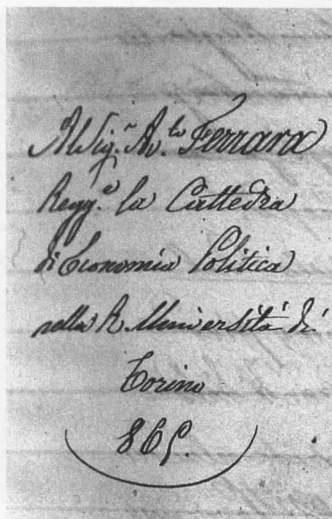 Al Sig.r Av.to Ferrara
Regg.e la Cattedra
di Economia Politica
nella R. Università di
Torino